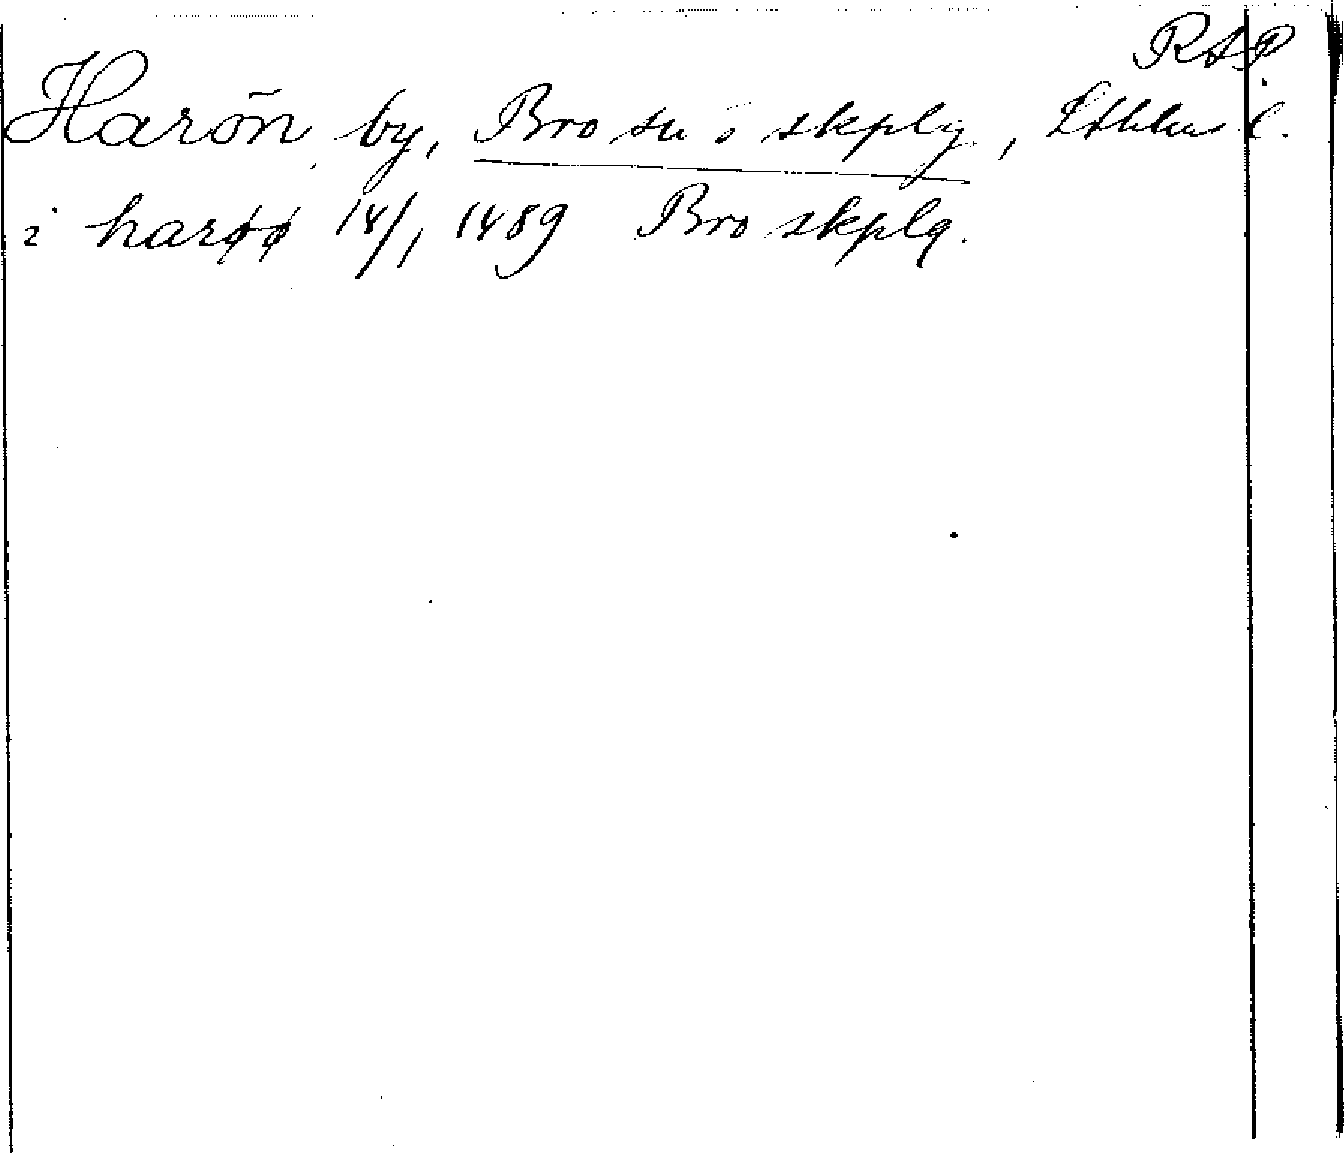 RAP
Harön by, Bro sn o skplg, Sthlms l.
i harøø 14/1 1489 Bro skplg.